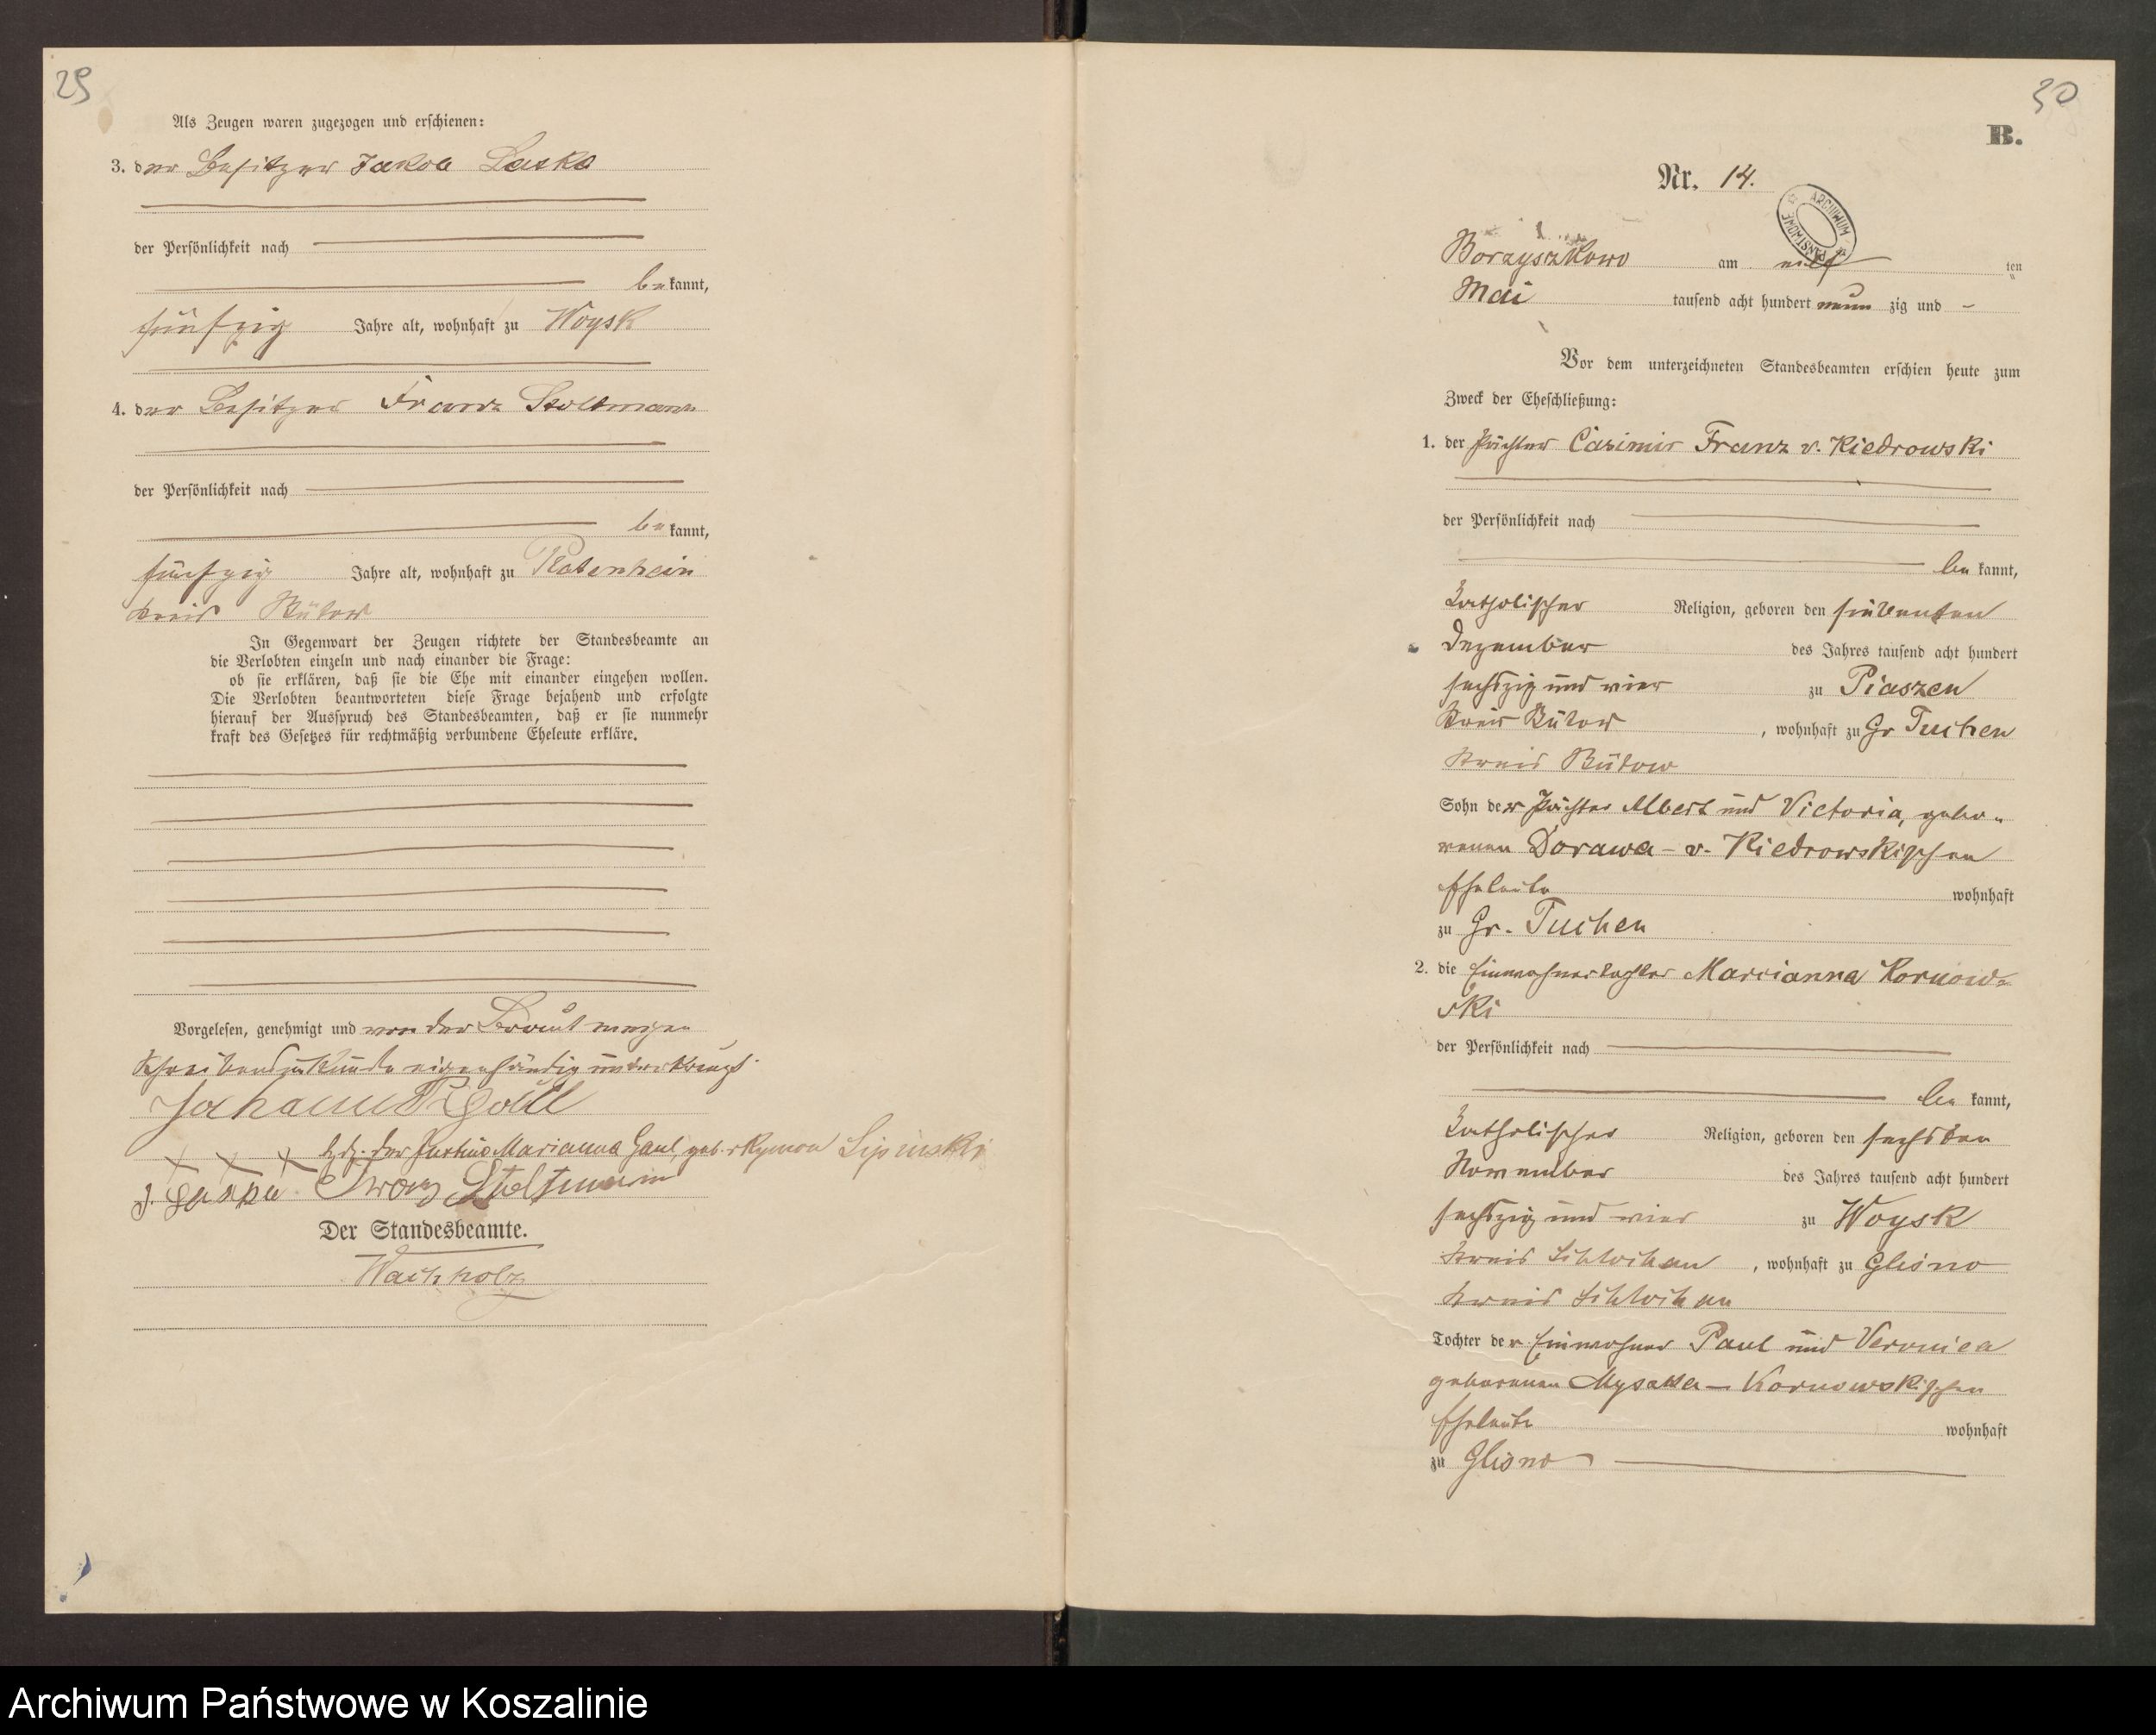 29
Als Zeugen waren zugezogen und erschienen:
3. der Besitzer Jakob Laska
der Persönlichkeit nach
bekannt,
fünfzig Jahre alt, wohnhaft zu Woysk
4. der Besitzer Franz Stoltmann
der Persönlichkeit nach
bekannt,
fünfzig Jahre alt, wohnhaft zu
Kreis Bütow
In Gegenwart der Zeugen richtete der Standesbeamte an
die Verlobten einzeln und nach einander die Frage:
ob sie erklären, daß sie die Ehe mit einander eingehen wollen.
Die Verlobten beantworteten diese Frage bejahend und erfolgte
hierauf der Ausspruch des Standesbeamten, daß er sie nunmehr
kraft des Gesetzes für rechtmäßig verbundene Eheleute erkläre.
Vorgelesen, genehmigt und von der Braut wegen
Schreibensunkunde eigenhändig unterkreuzt
Johann
+ + + Hdz. der Marianna Gaul, geb. Lipinski
J. Franz Stoltmann
Der Standesbeamte.
Wachholz
30
B.
Nr. 14.
ARCHIWUM PAŃSTWOWE
Borzyszkowo am elf ten
Mai tausend acht hundert neun zig und -
Vor dem unterzeichneten Standesbeamten erschien heute zum
Zweck der Eheschließung:
1. der Pächter Casimir Franz v. Kiedrowski
der Persönlichkeit nach
bekannt,
katholischer Religion, geboren den siebenten
Dezember des Jahres tausend acht hundert
sechszig und vier zu Piaszen
Kreis Bütow, wohnhaft zu Gr Tuchen
Kreis Bütow
Sohn der Pächter Albert und Victoria, gebo-
renen Dorawa - v. Kiedrowskischen
Eheleute wohnhaft
zu Gr. Tuchen
2. die Einwohnertochter Marcianna Kornow-
ski
der Persönlichkeit nach
bekannt,
katholischer Religion, geboren den sechsten
November des Jahres tausend acht hundert
sechszig und vier zu Woysk
Kreis Schlochau, wohnhaft zu Glisno
Kreis Schlochau
Tochter der Einwohner Paul und Veronica
geborenen - Kornowskischen
Eheleute wohnhaft
zu Glisno
Archiwum Państwowe w Koszalinie